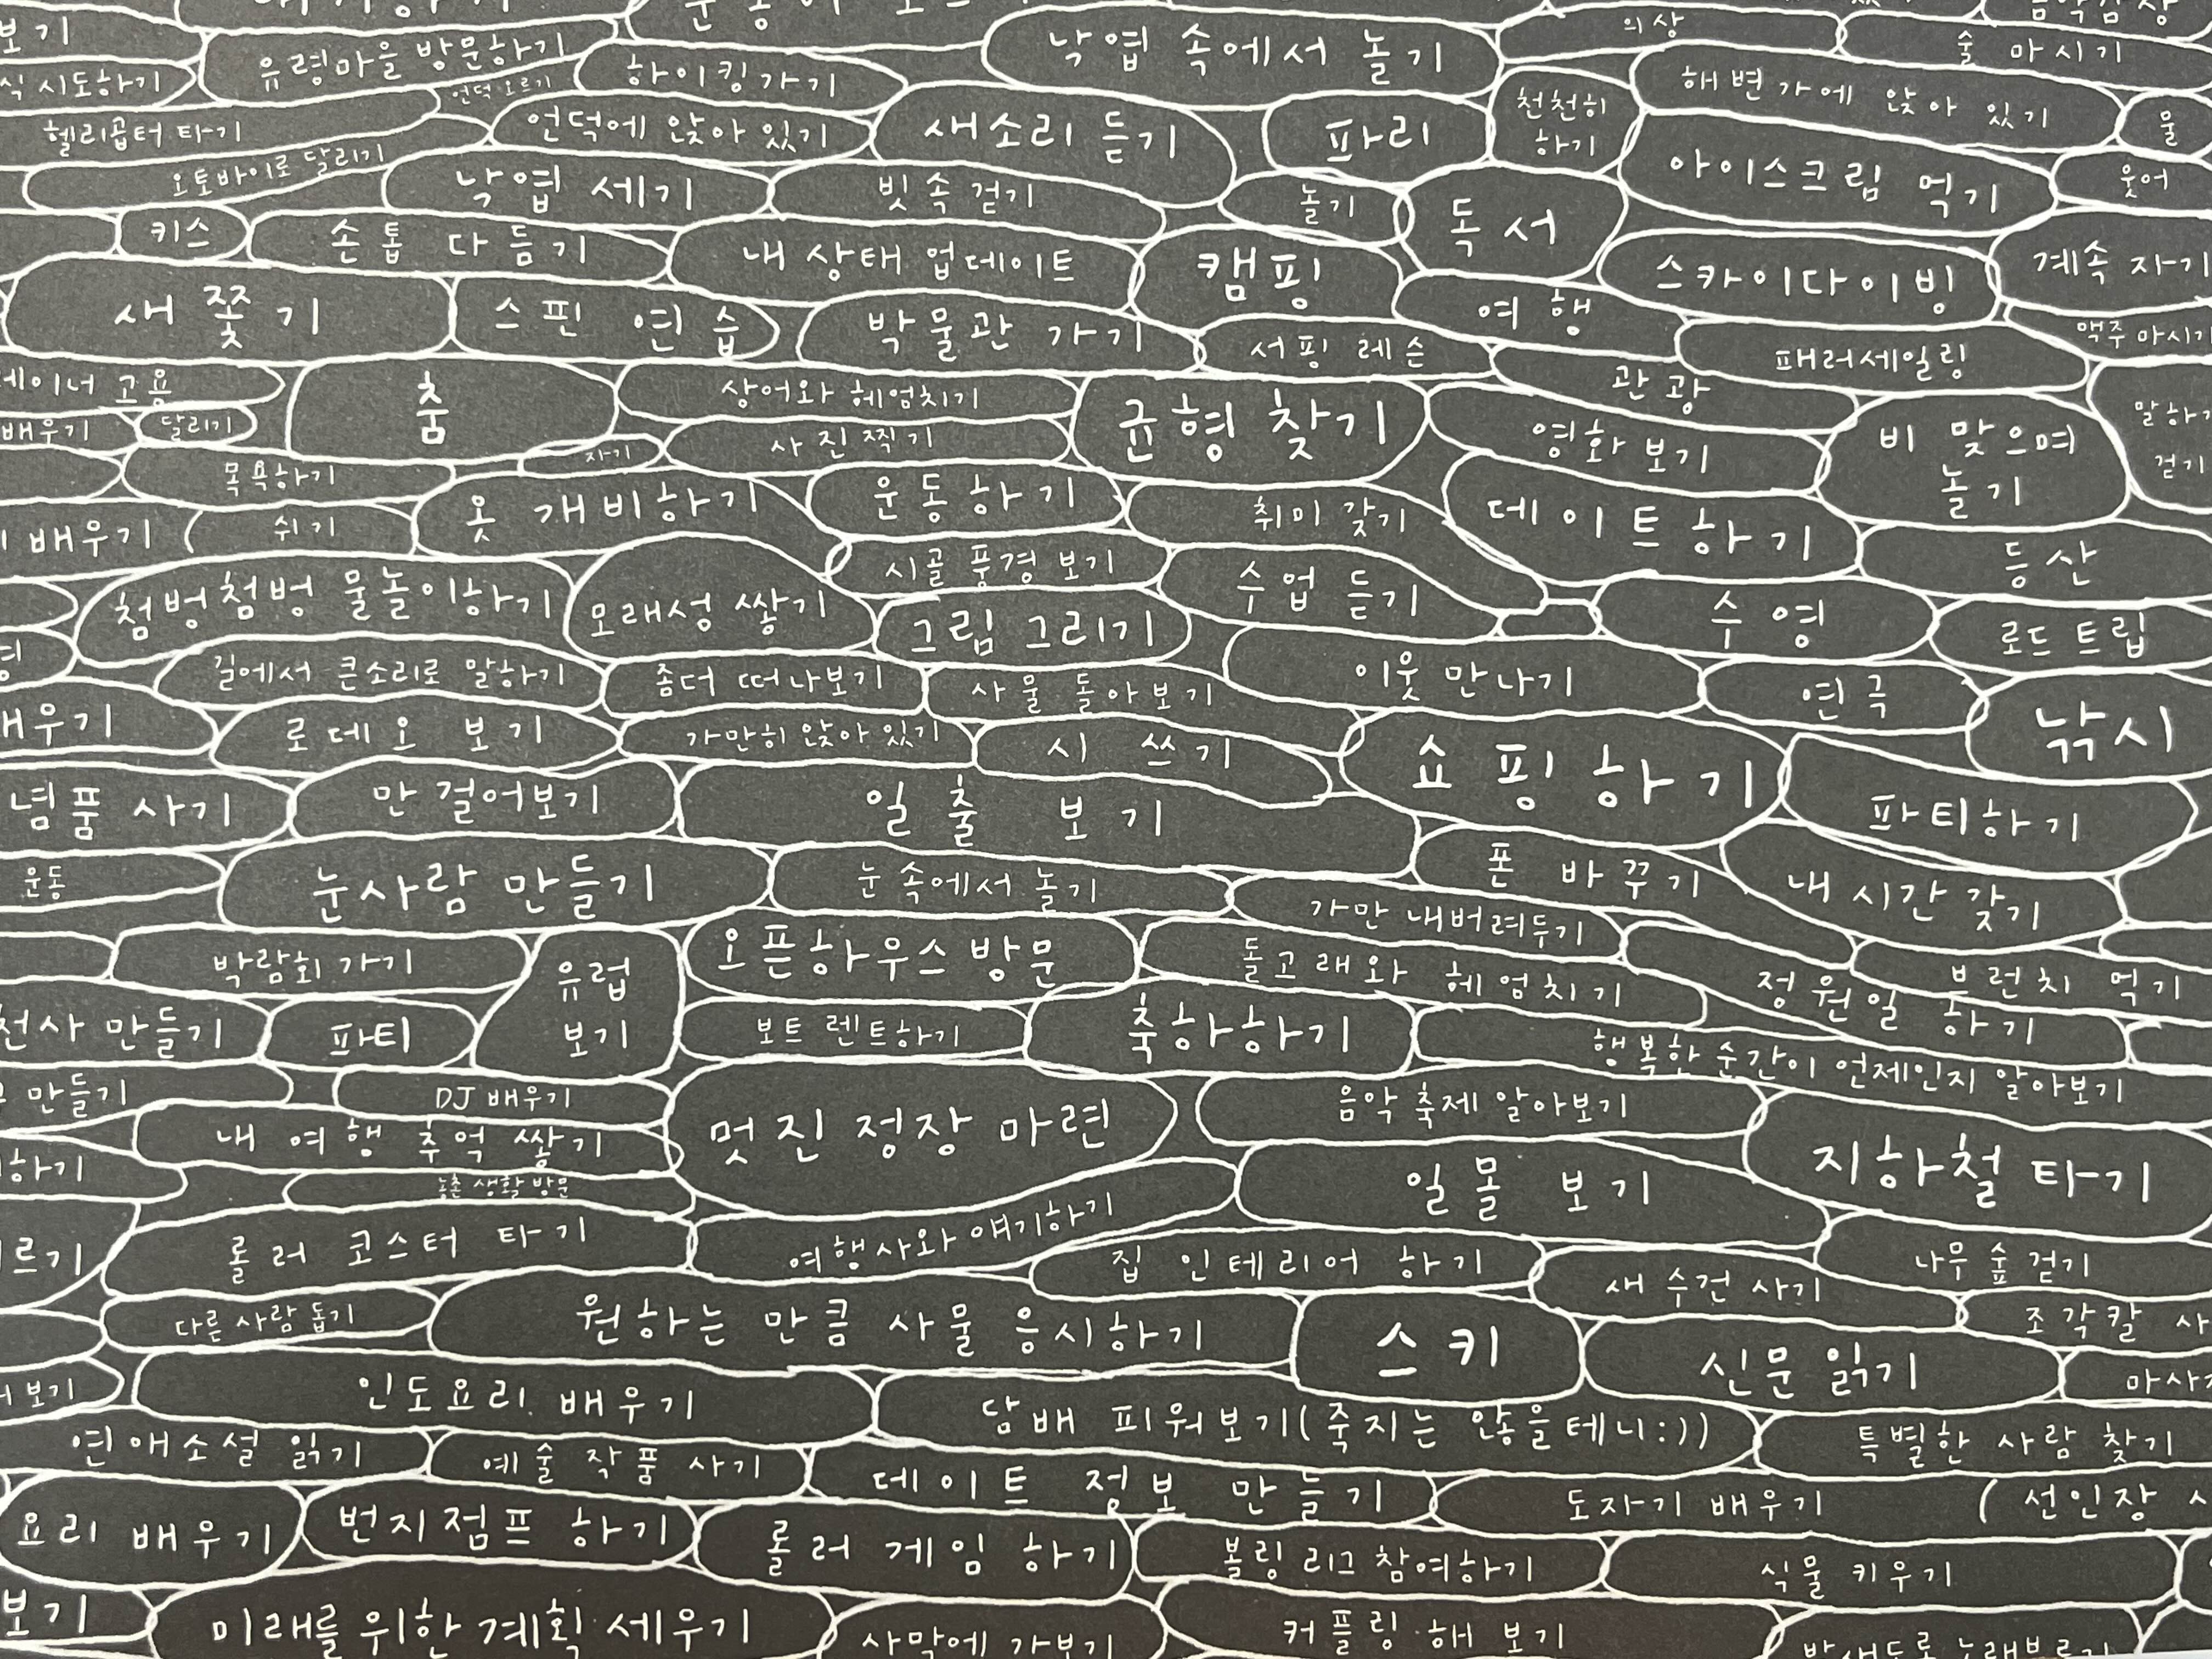 보기
유령마을 방문하기
낙엽 속에서 놀기
의상
술 마시기
식 시도하기
언덕 오르기
하이킹 가기
해변가에 앉아 있기
헬리콥터 타기
언덕에 앉아 있기
새소리 듣기
파리
천천히
하기
물
오토바이로 달리기
낙엽 세기
빗속 걷기
놀기
독서
아이스크림 먹기
웃어
키스
손톱 다듬기
내 상태 업데이트
캠핑
여행
스카이다이빙
계속 자기
새 쫓기
스핀 연습
박물관 가기
서핑 레슨
패러세일링
맥주 마시기
데이너 고용
춤
상어와 헤엄치기
균형 찾기
관광
배우기
달리기
자기
사진찍기
영화 보기
비 맞으며
놀기
말하기
걷기
목욕하기
옷 개비하기
운동하기
취미 갖기
데이트하기
배우기
쉬기
시골 풍경 보기
수업 듣기
등산
첨벙첨벙 물놀이하기
모래성 쌓기
그림 그리기
수영
로드 트립
길에서 큰소리로 말하기
좀더 떠나보기
사물 돌아보기
이웃 만나기
연극
낚시
배우기
로데오 보기
가만히 앉아 있기
시 쓰기
쇼핑하기
파티하기
념품 사기
만 걸어보기
일출 보기
폰 바꾸기
내 시간 갖기
운동
눈사람 만들기
눈 속에서 놀기
가만 내버려두기
박람회 가기
유럽
보기
오픈하우스 방문
돌고래와 헤엄치기
정원일 하기
브런치 먹기
천사 만들기
파티
보트 렌트하기
축하하기
행복한 순간이 언제인지 알아보기
만들기
DJ 배우기
멋진 정장 마련
음악 축제 알아보기
내 여행 추억 쌓기
지하철 타기
하기
농촌 생활 방문
일몰 보기
르기
롤러 코스터 타기
여행사와 얘기하기
집 인테리어 하기
새 수건 사기
나무 숲 걷기
다른 사람 돕기
원하는 만큼 사물 응시하기
스키
신문 읽기
조각칼 사
보기
인도요리 배우기
담배 피워보기(죽지는 않을테니:))
마사지
연애소설 읽기
예술 작품 사기
데이트 정보 만들기
특별한 사람 찾기
도자기 배우기
(선인장
요리 배우기
번지점프 하기
롤러 게임 하기
볼링 리그 참여하기
식물 키우기
보기
미래를 위한 계획 세우기
사막에 가보기
커플링 해 보기